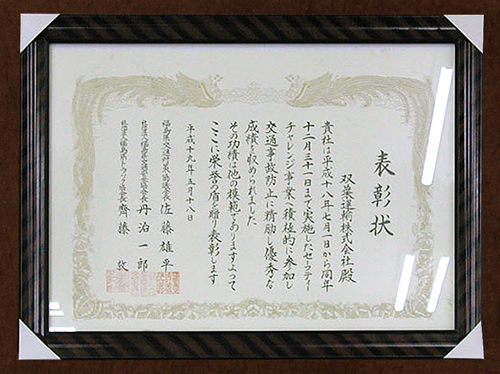 表彰状
双葉運輸株式会社殿
貴社は平成十八年七月一日から同年
十二月三十一日まで実施したセーフティー
チャレンジ事業へ積極的に参加し
交通事故防止に精励し優秀な
成績を収められました
その功績は他の模範でありますよって
ここに栄誉の盾を贈り表彰します
平成十九年五月十八日
福島県交通対策協議会長 佐藤雄平
社団法人福島県安全運転管理者協会長 丹治一郎
社団法人福島県トラック協会長 齊藤